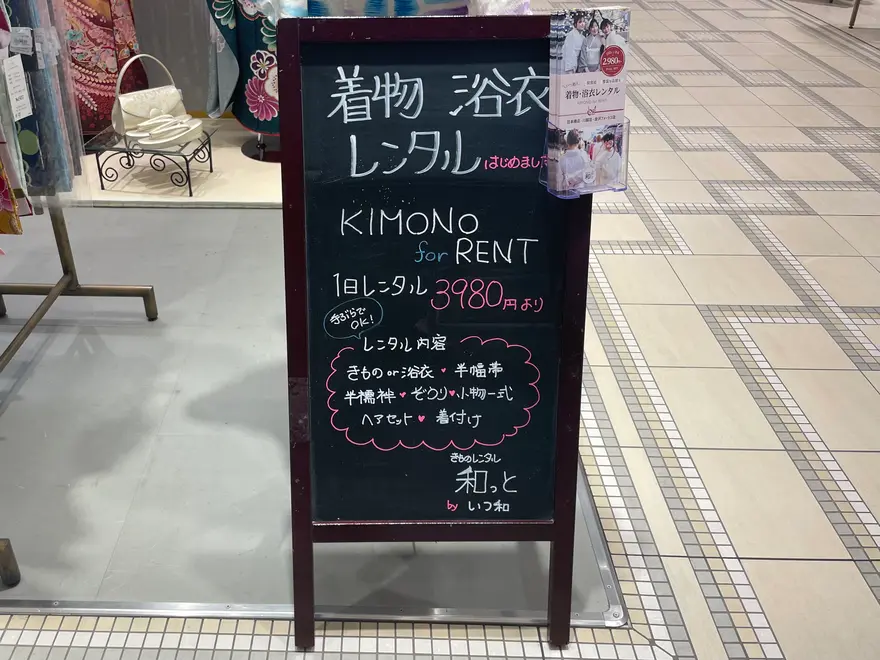 着物 浴衣
レンタル はじめました
KIMONO
for RENT
1日レンタル 3980円より
手ぶらで
OK!
レンタル内容
きもの or 浴衣・半幅帯
半襦袢♥ぞうり♥小物一式
ヘアセット♥着付け
きものレンタル
和っと
by いつ和
2,980
着物・浴衣レンタル